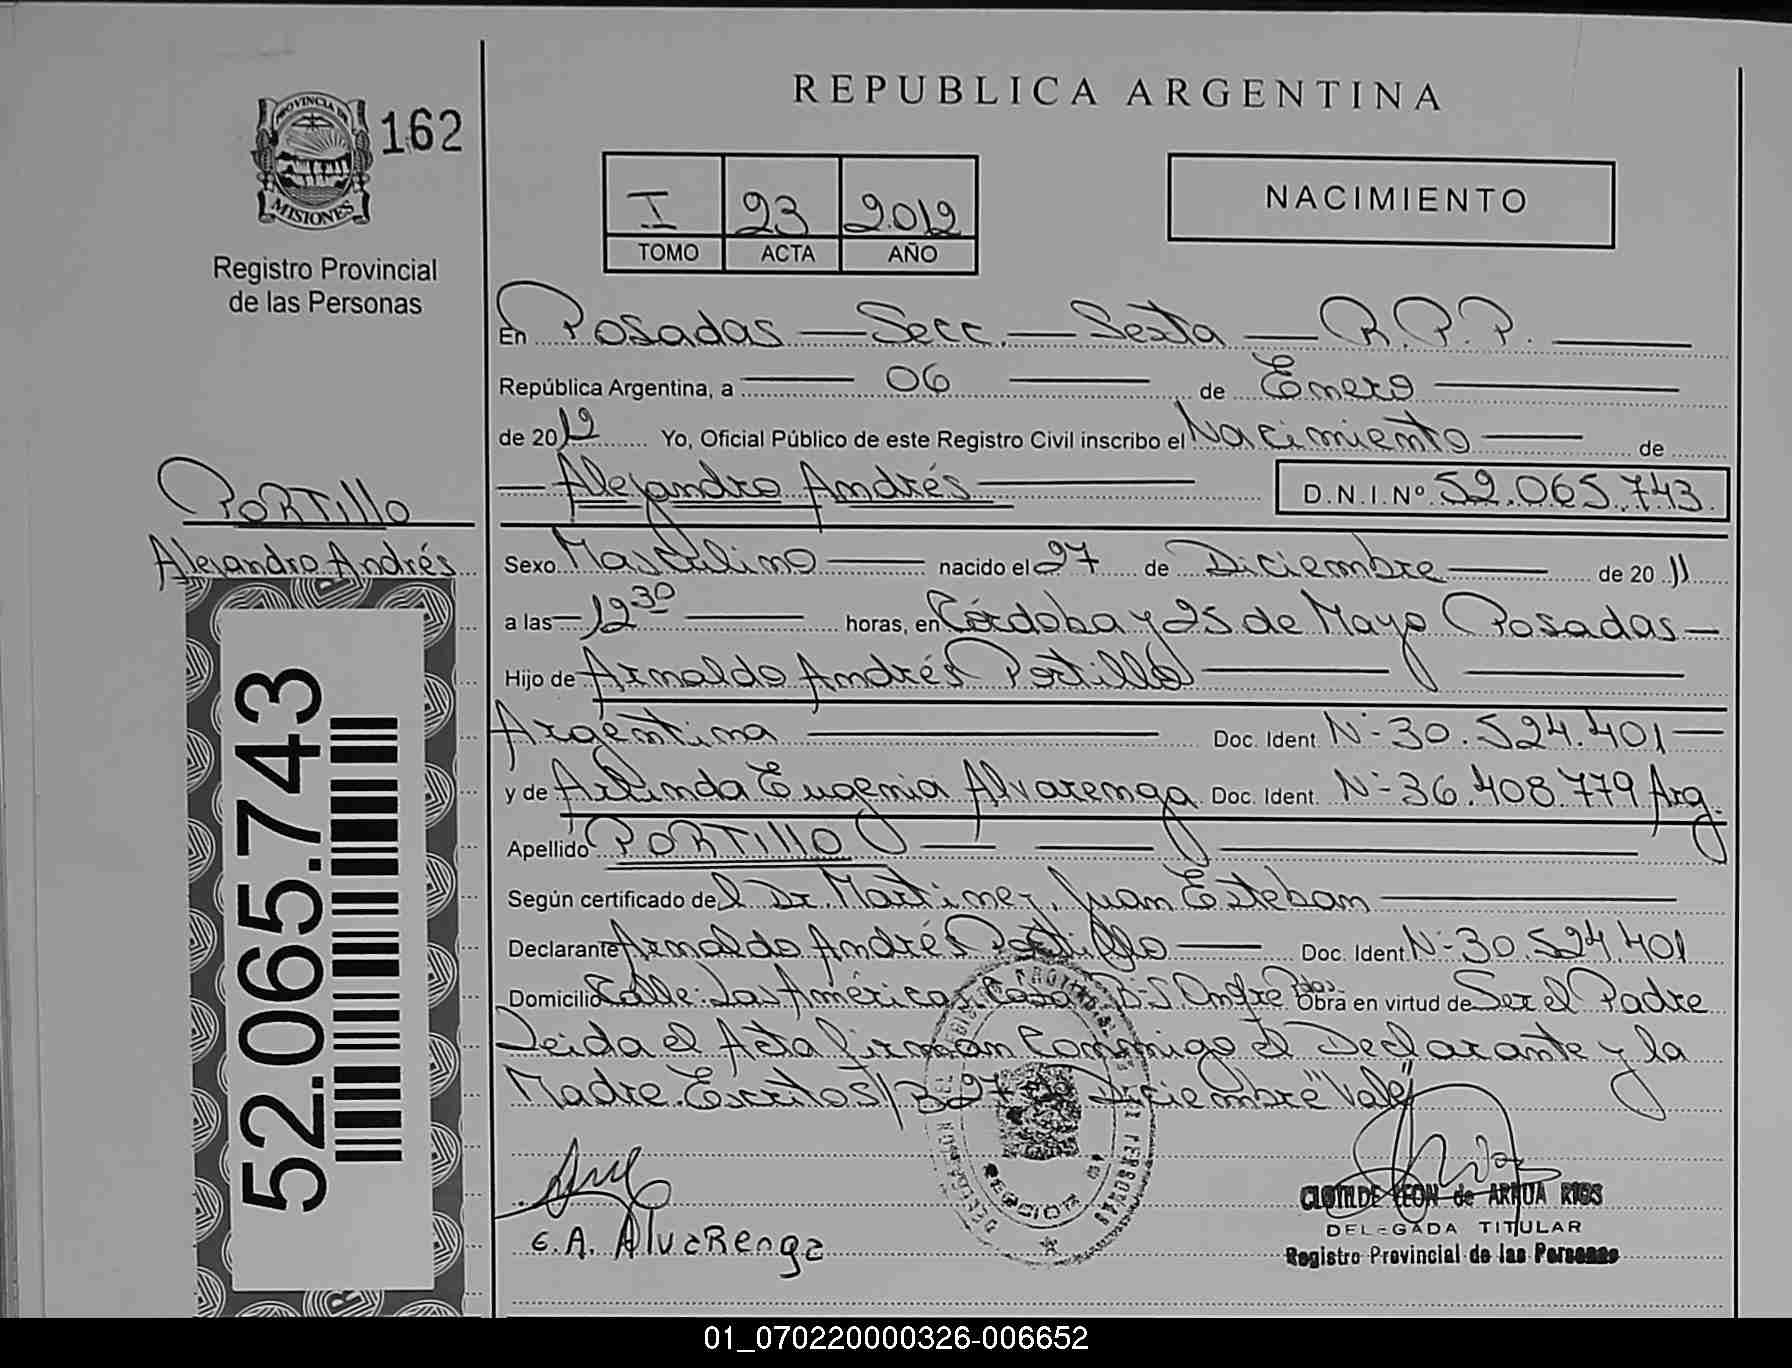 PROVINCIA DE
MISIONES
162
Registro Provincial
de las Personas
PORTILLO
Alejandro Andrés
52.065.743
REPUBLICA ARGENTINA
I 23 2.012
TOMO ACTA AÑO
NACIMIENTO
En Posadas — Secc. — Sexta — R.P.P.
República Argentina, a 06 de Enero
de 2012 Yo, Oficial Público de este Registro Civil inscribo el Nacimiento de
Alejandro Andrés D.N.I.Nº 52.065.743.
Sexo Masculino nacido el 27 de Diciembre de 2011
a las 12 30 horas, en Córdoba y 25 de Mayo Posadas
Hijo de Arnaldo Andrés Portillo
Argentina Doc. Ident. Nº 30.524.401
y de Arlinda Eugenia Alvarenga Doc. Ident. Nº 36.408.779 Arg.
Apellido PORTILLO
Según certificado del Dr. Martinez, Juan Esteban
Declarante Arnaldo Andrés Portillo Doc. Ident. Nº 30.524.401
Domicilio Calle: Las Américas Casa Obra en virtud de Ser el Padre
Leida el Acta firman Conmigo el Declarante y la
Madre. Escritos 27 Diciembre "Vale"
E.A. Alvarenga
CLOTILDE LEON de ARRUA RIOS
DELEGADA TITULAR
Registro Provincial de las Personas
01_070220000326-006652